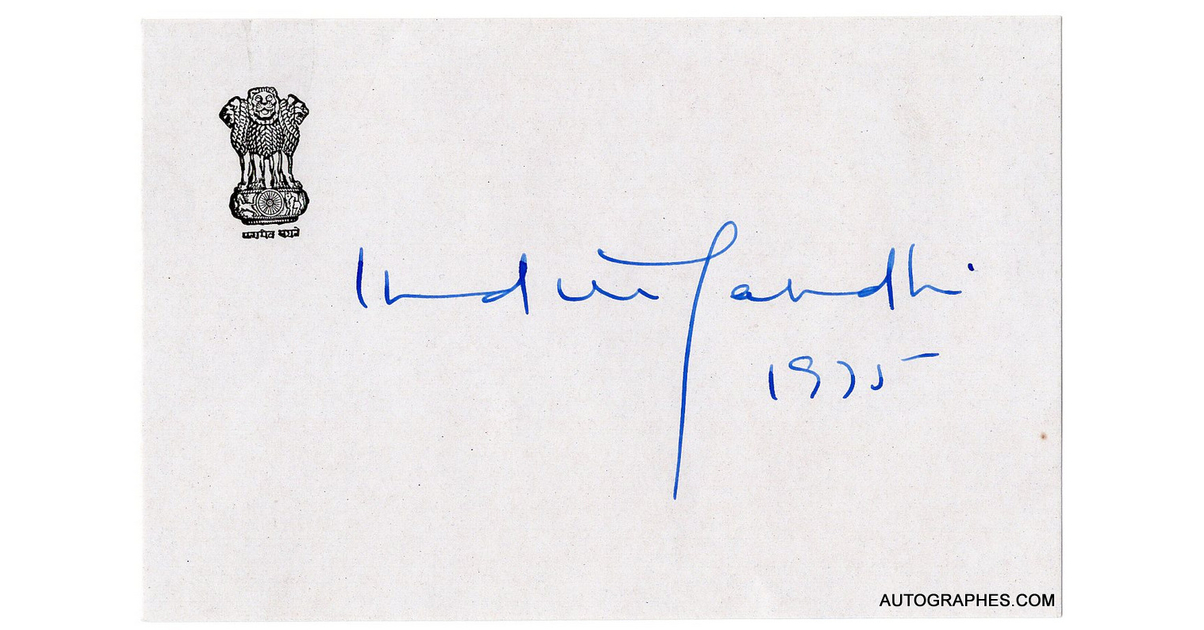 सत्यमेव जयते
Indira Gandhi
1975
AUTOGRAPHES.COM